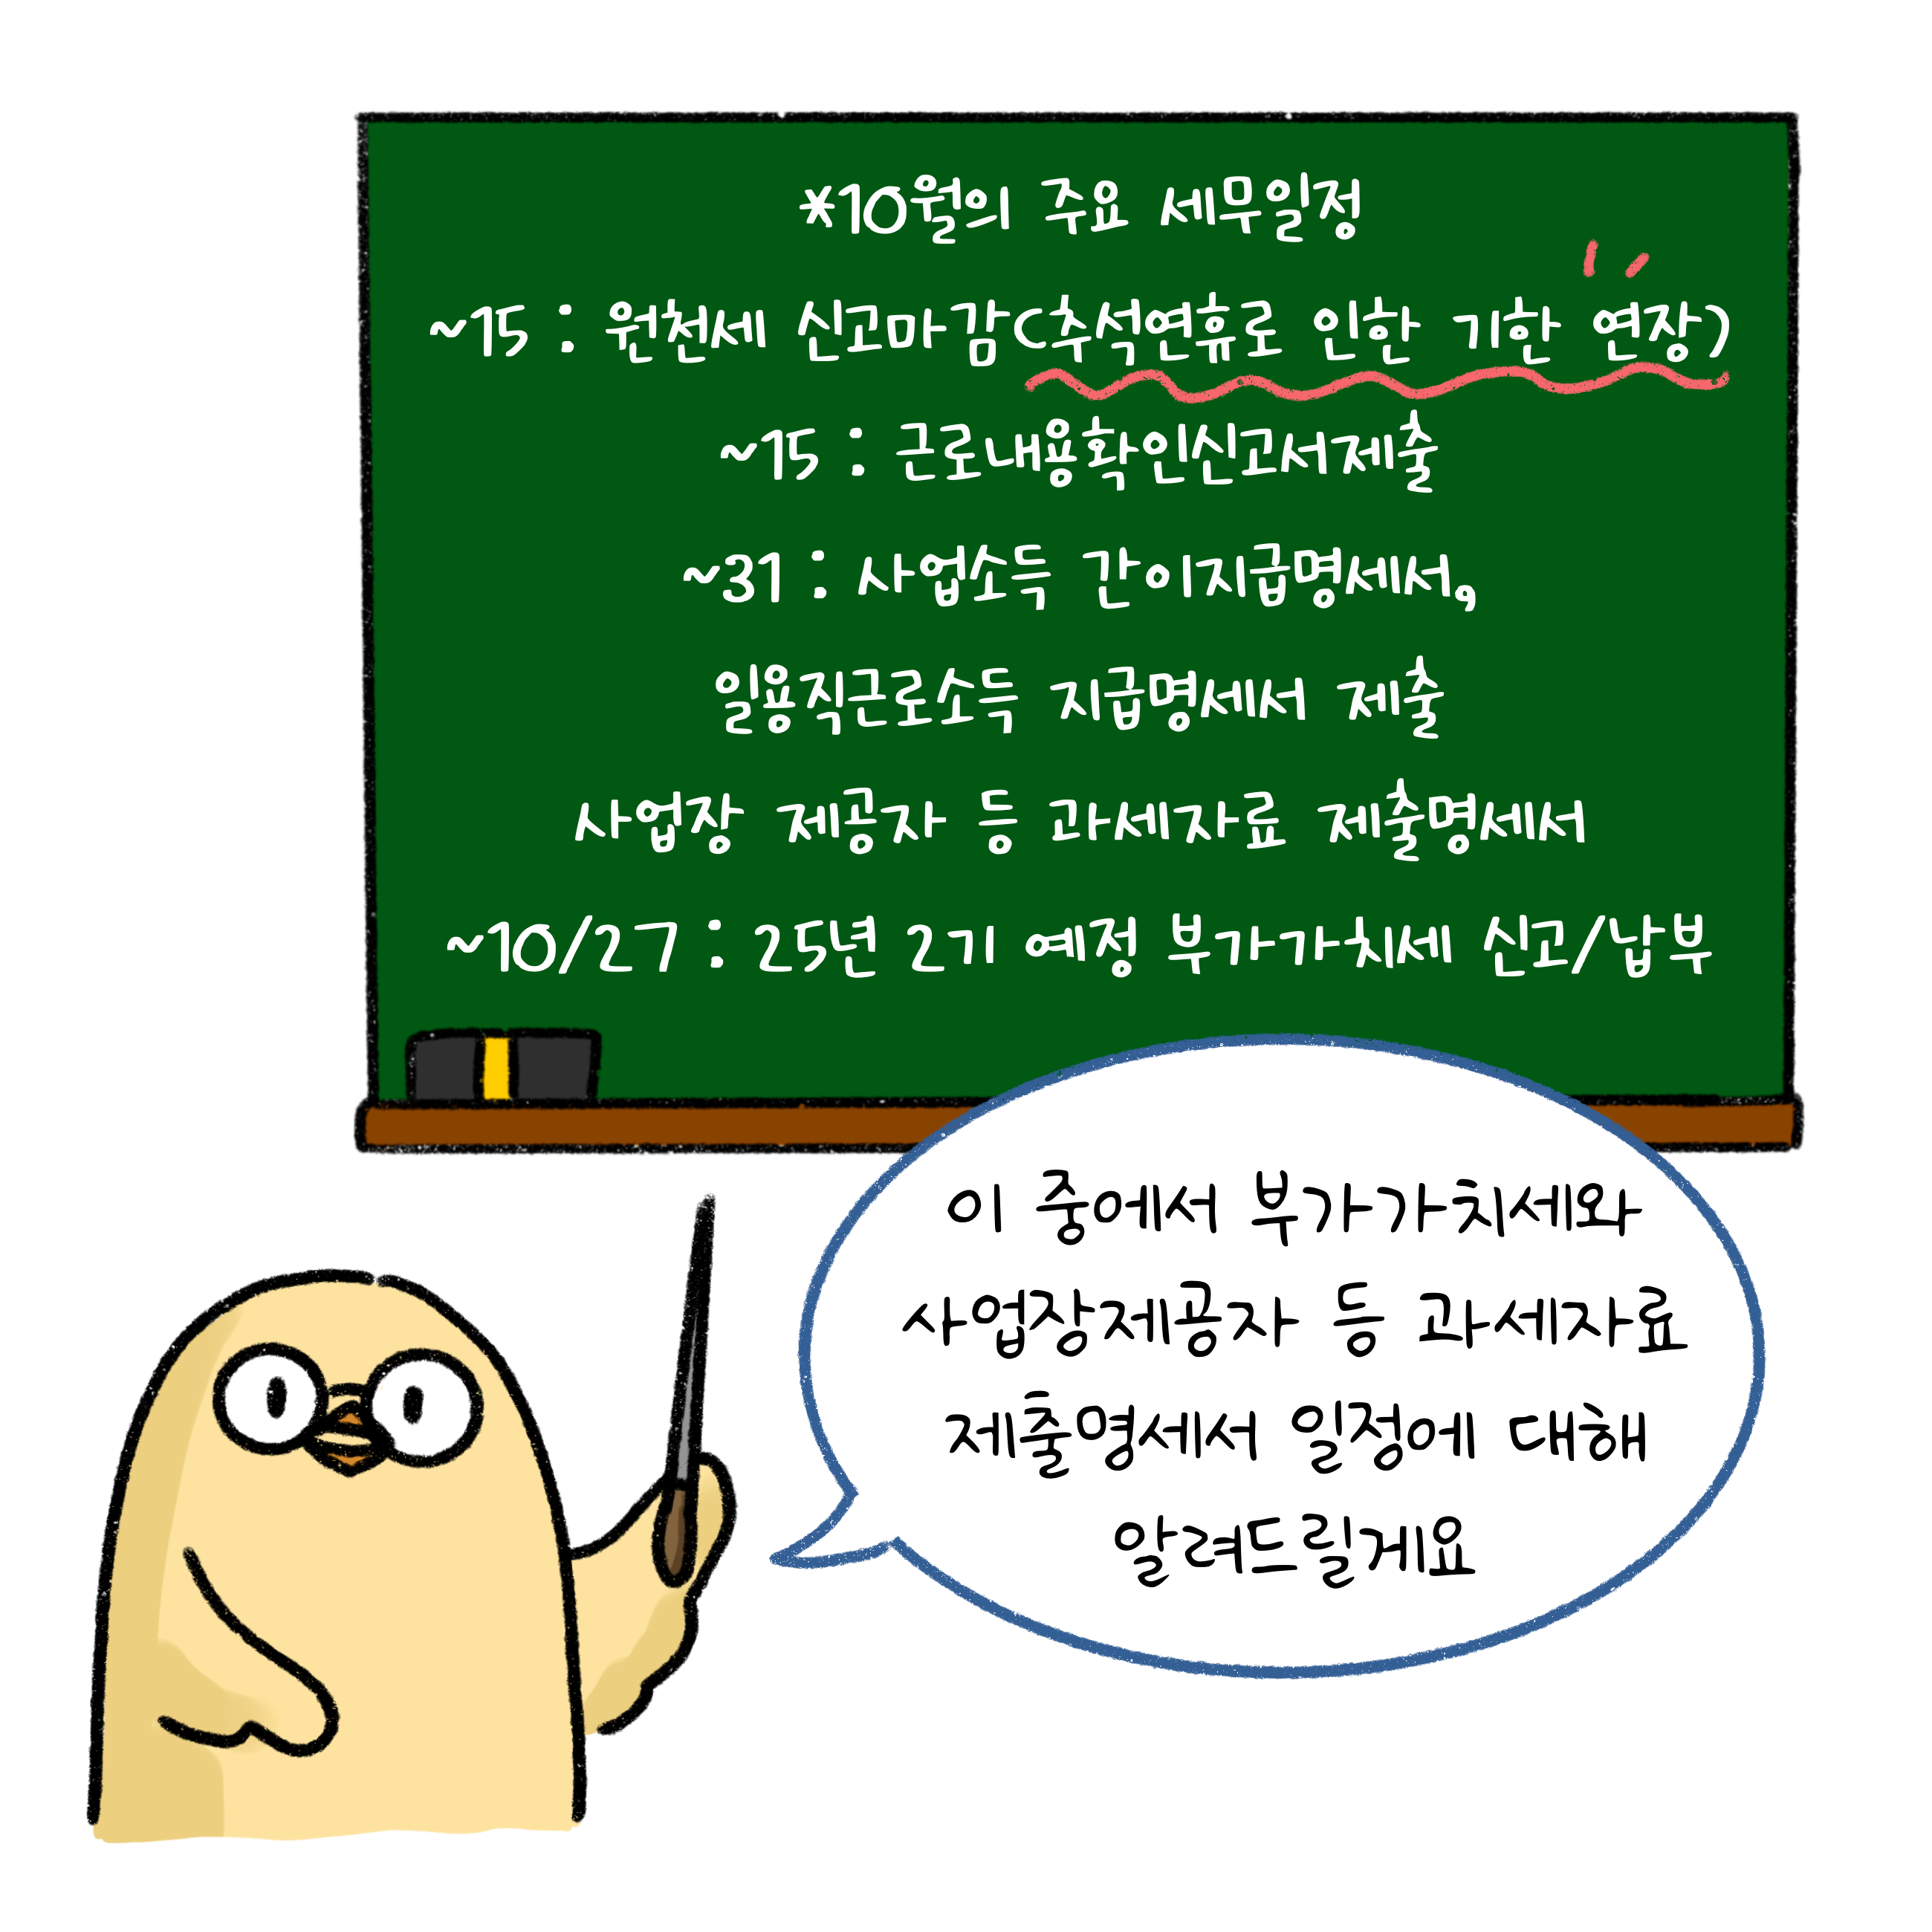 *10월의 주요 세무일정
~15 : 원천세 신고마감(추석연휴로 인한 기한 연장)
~15 : 근로내용확인신고서제출
~31 : 사업소득 간이지급명세서,
일용직근로소득 지급명세서 제출
사업장 제공자 등 과세자료 제출명세서
~10/27 : 25년 2기 예정 부가가치세 신고/납부
이 중에서 부가가치세와
사업장제공자 등 과세자료
제출명세서 일정에 대해
알려드릴게요